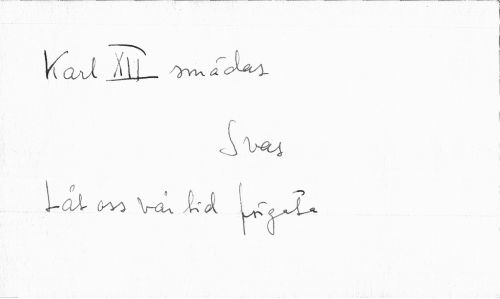 Karl XII smädas
Svas
Låt oss vår tid förgäta